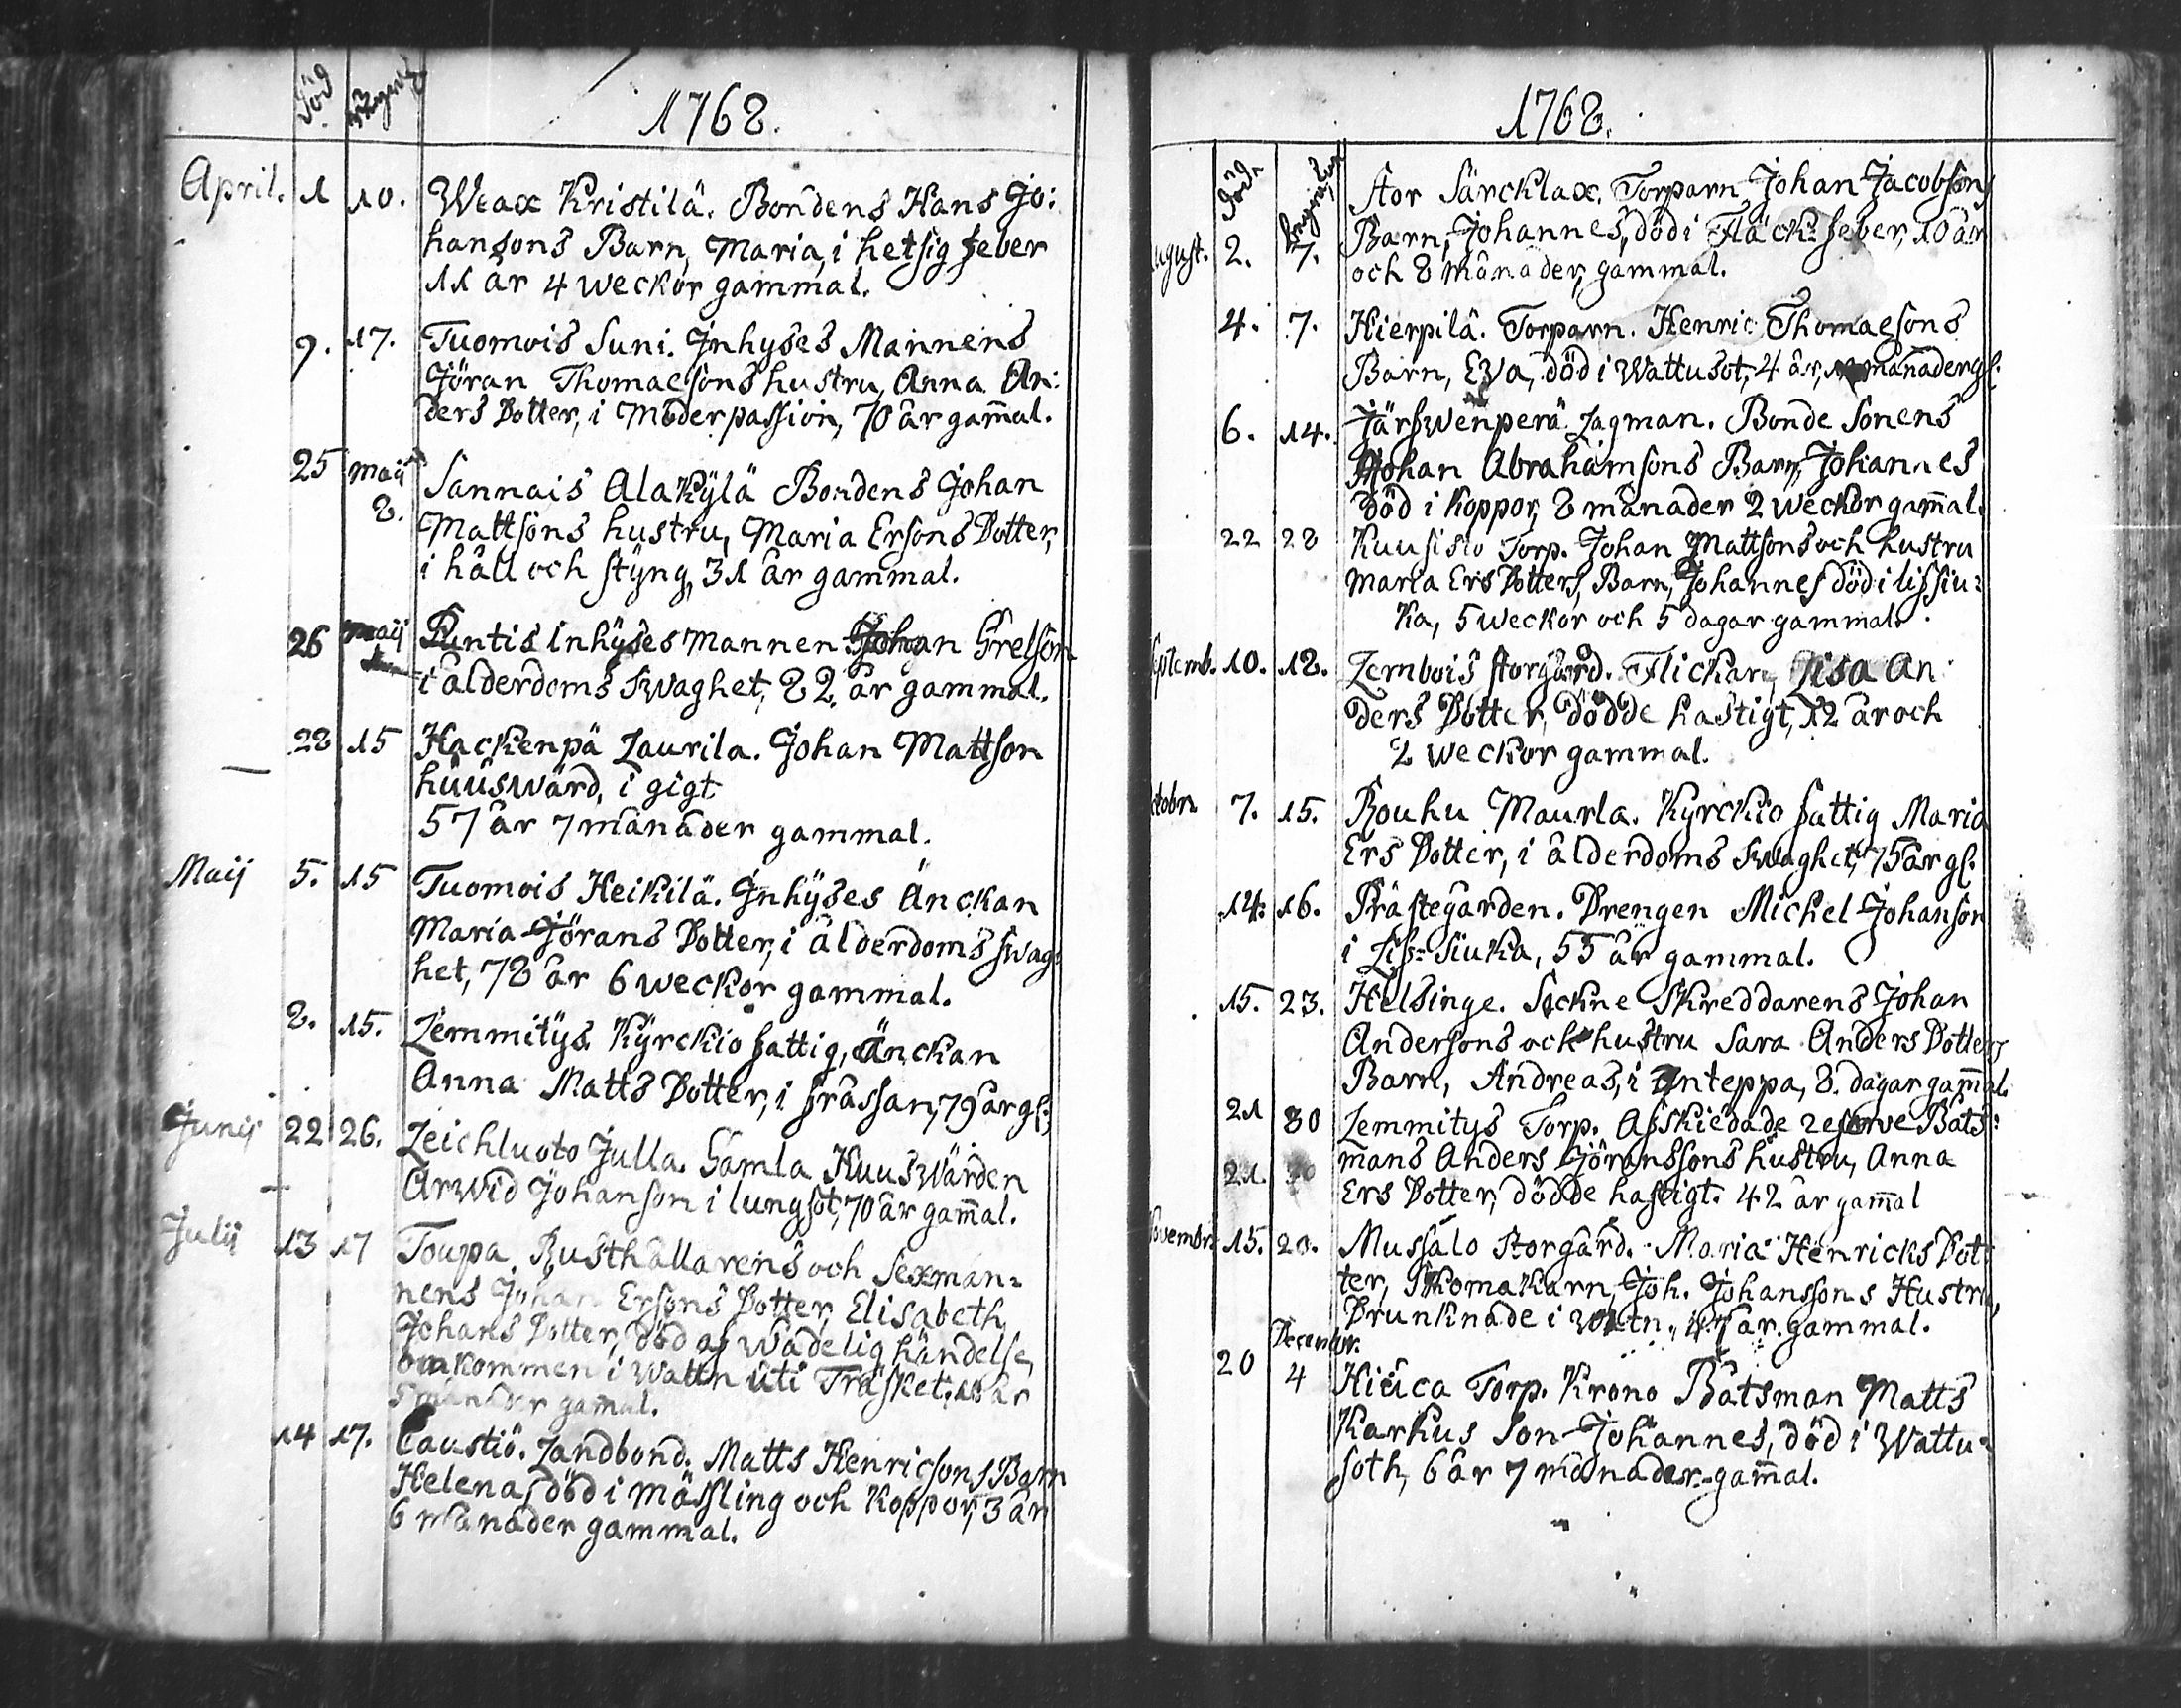 Död
1768.
April. 1 10. Weax Kristilä. Bondens Hans Jo:
hansons Barn, Maria, i hetsig feber
11 år 4 weckor gammal.
9. 17. Tuomois Suni. Inhyses Mannens
Jöran Thomaesons hustru, Anna An:
ders Dotter, i Moderpassion, 70 år gam̄al.
25 Maij Sannais Alakylä Bondens Johan
8. Mattsons hustru, Maria Ersons Dotter,
i håll och styng, 31 år gammal.
26 Maij Puntis Inhyses mannen Johan Grelson
i ålderdoms swaghet, 82 år gammal.
28 15 Hackenpä Laurila. Johan Mattson
huuswärd, i gigt
57 år 7 månader gammal.
Maij 5. 15 Tuomois Heikilä. Inhyses Änckan
Maria Jörans Dotter, i ålderdoms swag:
het, 78 år 6 weckor gammal.
8. 15. Lemmitys. Kyrckio fattig, Änckan
Anna Matts Dotter, i frässan, 79 år gl:
Junij 22 26. Leichluoto Julla. Gamla Huuswärden
Arwid Johanson i lungsot, 70 år gam̄al.
Julij 13 17 Toupa. Rusthållarens och Sexman=
nens Johan Ersons Dotter, Elisabeth
Johans Dotter, död af wådelig händelse,
omkommen i Wattn uti Träsket, år
månader gamal.
14 17. Caustiö. Landbond. Matts Henricsons Barn
Helena, död i mässling och Koppor, 3 år
6 månader gammal.
1768.
Död.
Stor Särcklax. Torparn Johan Jacobsons
August. 2. 7. Barn, Johannes, död i Fläck feber, 10 år
och 8 månader, gammal.
4. 7. Hierpilä. Torparn. Henric Thomaesons
Barn, Eva, död i Wattusot, 4 år, månader gl:
6. 14. Järfwenperä Lagman. Bonde Sonens
Johan Abrahamsons Barn, Johannes
Död i Koppor, 8 månader 2 weckor gam̄al.
22 28 Kuusisto Torp. Johan Mattsons och hustru
Maria Ers Dotters, Barn, Johannes död i lissiu:
ka, 5 weckor och 5 dagar gammal.
Septemb. 10. 18. Lembois Storgård. Flickan, Lisa An
ders Dotter, dödde hastigt, 12 år och
2 weckor gammal.
Octobr. 7. 15. Rouhu Maurla. Kyrckio fattig Maria
Ers Dotter, i ålderdoms swaghet, 75 år gl:
14. 16. Prästegården. Drengen Michel Johanson
i Liss=siuka, 55 år gammal.
15. 23. Helsinge. Sockne Skreddarens Johan
Andersons och hustru Sara Anders Dotters
Barn, Andreas, i Anteppa, 8. dagar gam̄al.
21 30 Lemmitys Torp. Afskiedade reserve Båts:
21. 30 mans Anders Jöranssons hustru, Anna
Ers Dotter, dödde hastigt. 42 år gam̄al
Novembr. 15. 20. Mussalo Storgård. Maria Henricks Dot
ter, Thomakarn, Joh. Johanssons Hustru,
Drunknade i år gammal.
December.
20 4 Hiuca Torp. Krono Båtsman Matts
Karhus Son Johannes, död i Wattu=
soth, 6 år 7 månader gam̄al.